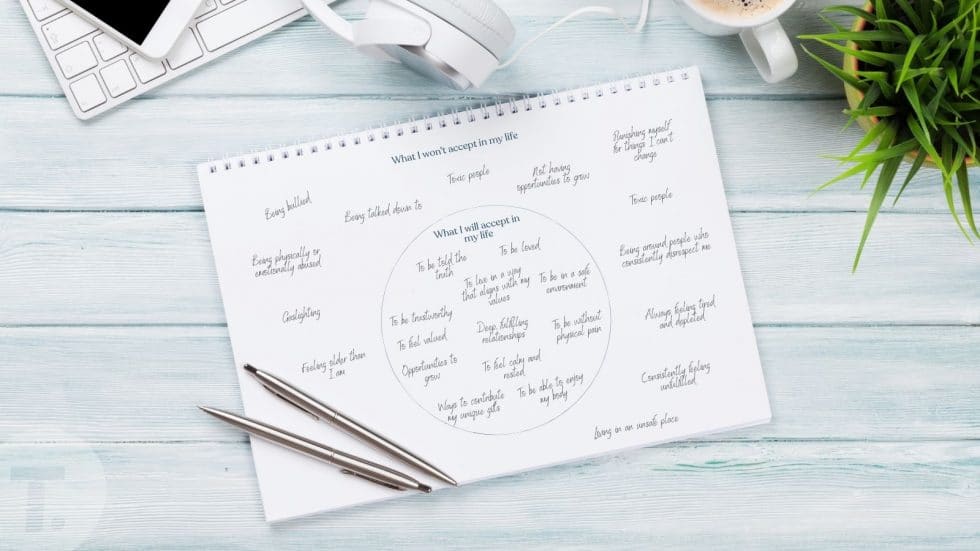 What I won't accept in my life
Punishing myself
for things I can't
change
Toxic people
Not having
opportunities to grow
Toxic people
Being bullied
Being talked down to
What I will accept in
my life
Being around people who
consistently disrespect me
Being physically or
emotionally abused
To be told the
truth
To be loved
To live in a way
that aligns with my
values
To be in a safe
environment
Gaslighting
To be trustworthy
Deep, fulfilling
relationships
To be without
physical pain
Always feeling tired
and depleted
To feel valued
Feeling older than
I am
Opportunities to
grow
To feel calm and
rested
Consistently feeling
unfulfilled
Ways to contribute
my unique gifts
To be able to enjoy
my body
Living in an unsafe place
T.